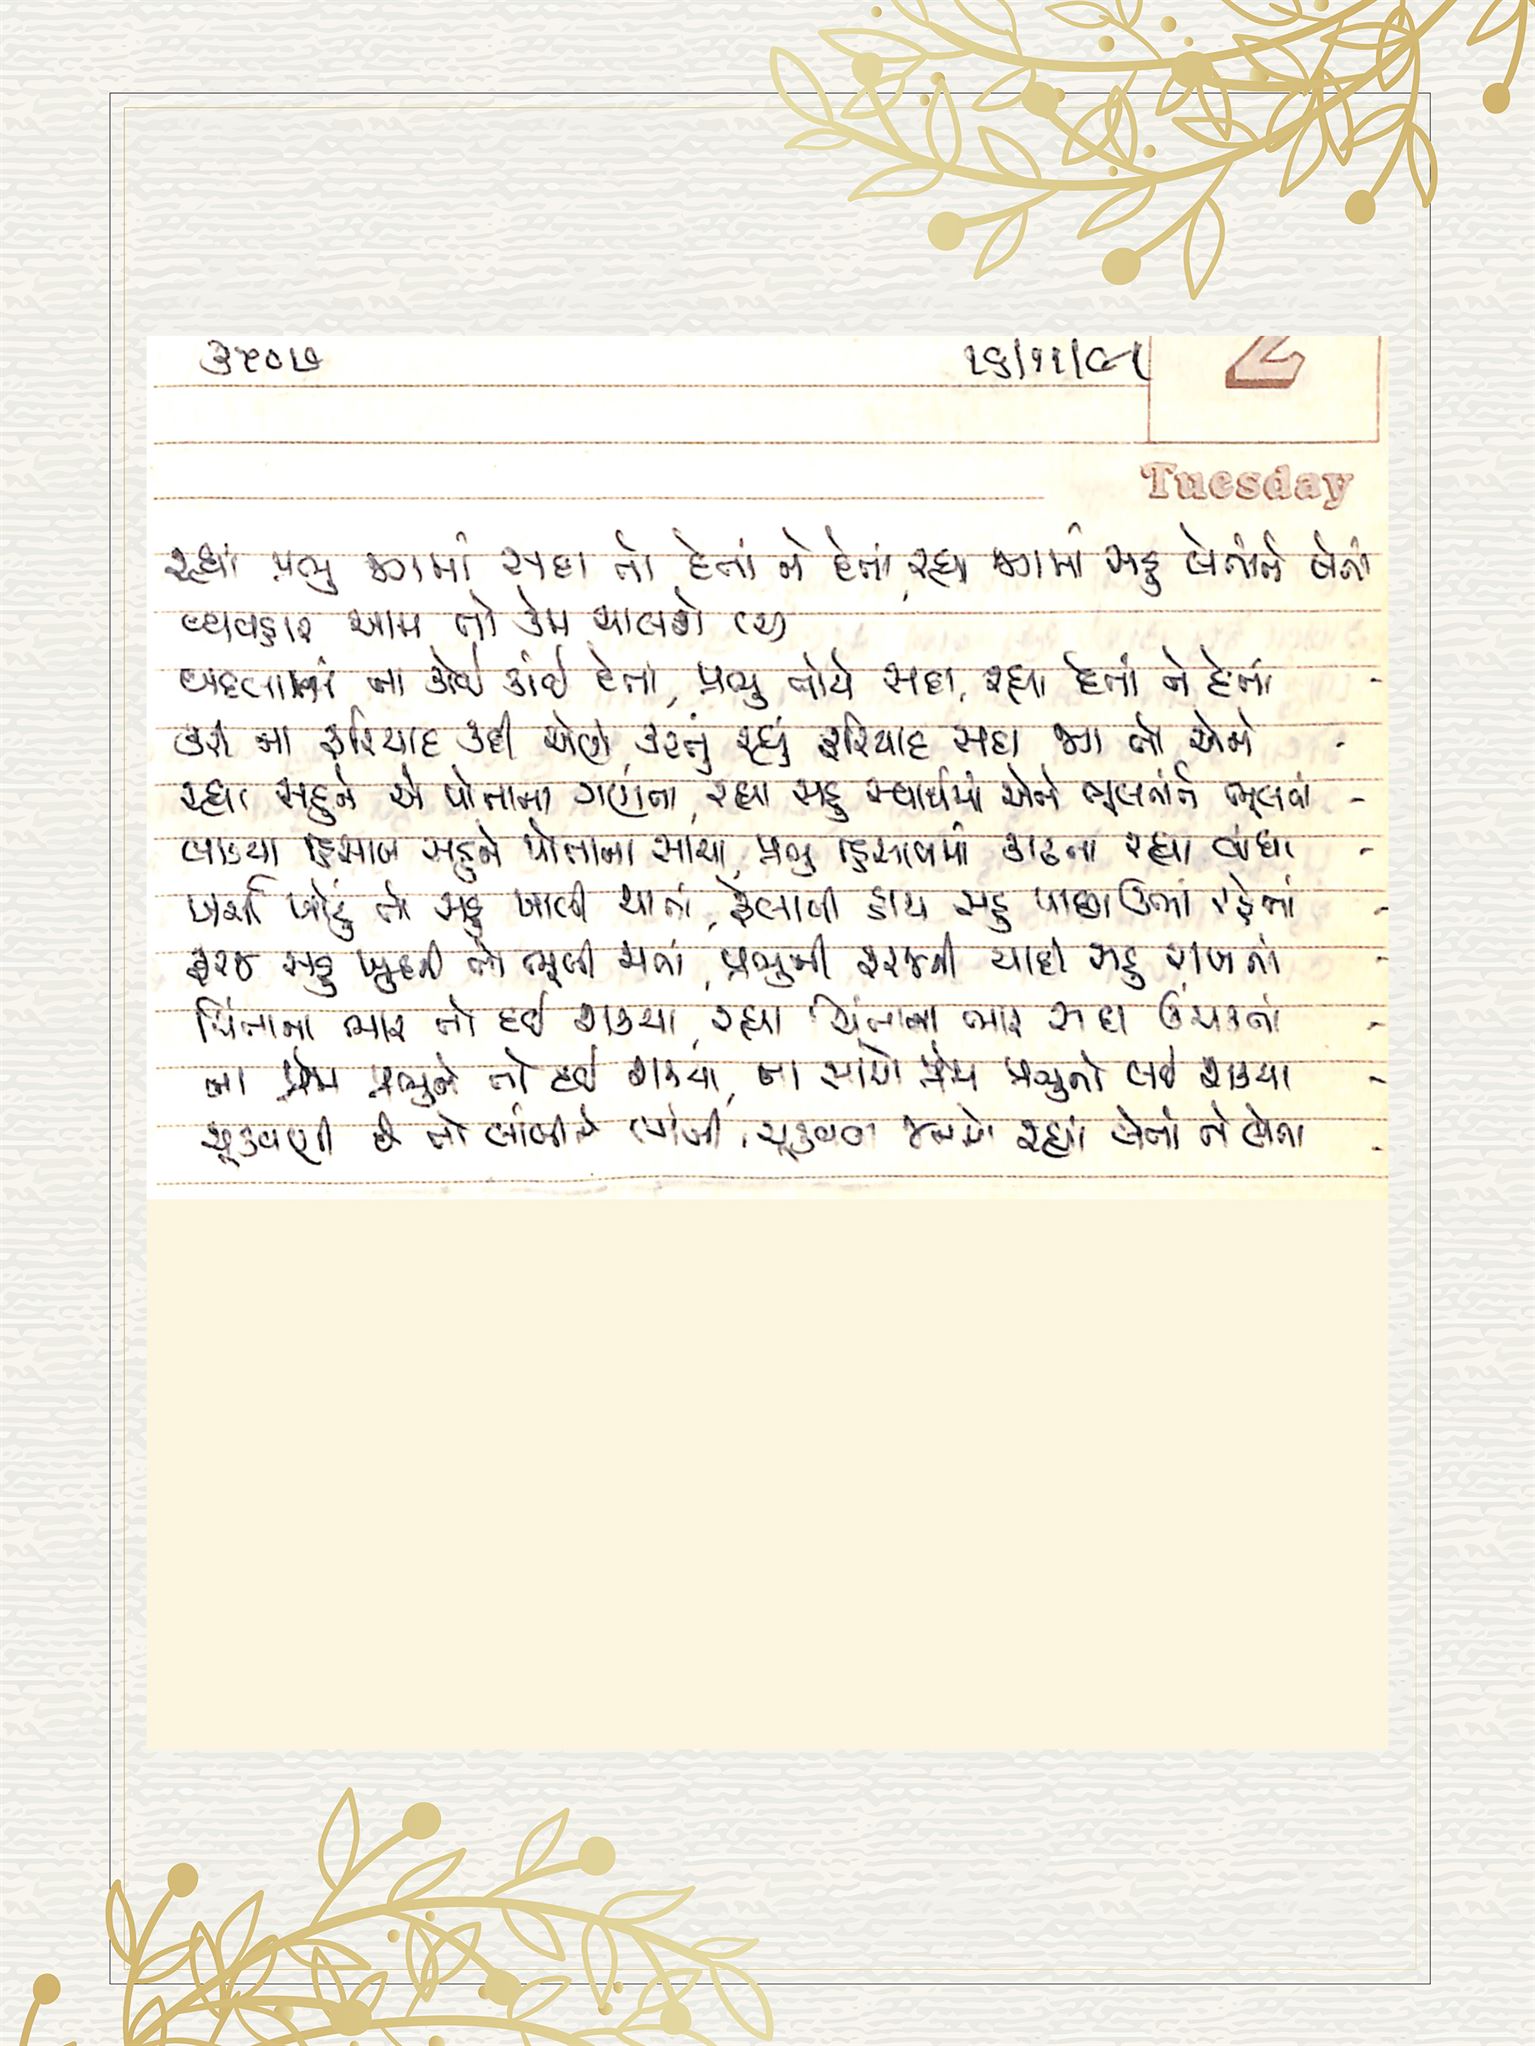 ૩૫૦૭ ૨૬/૧૧/૯૧
2
Tuesday
રહ્યાં પ્રભુ જગમાં સદા તો દેતાં ને દેતાં, રહ્યા જગમાં સહુ લેતાંને લેતાં
વ્યવહાર આમ તો કેમ ચાલશે (૨)
બદલામાં ના કોઈ કાંઈ દેતા, પ્રભુ તોયે સદા, રહ્યા દેતાં ને દેતાં -
કરી ના ફરિયાદ કદી એણે, કરતું રહ્યું ફરિયાદ સદા જગ તો એને -
રહ્યા સહુને એ પોતાના ગણતા, રહ્યા સહુ સ્વાર્થમાં એને ભૂલતાંને ભૂલતાં -
લાગ્યા હિસાબ સહુને પોતાના સાચા, પ્રભુ હિસાબમાં કાઢતા રહ્યા વાંધા -
ખર્ચી ખોટું તો સહુ ખાલી થાતાં, ફેલાવી હાથ સહુ પાછા ઊભાં રહેતાં -
ફરજ સહુ ખુદની તો ભૂલી જાતાં, પ્રભુની ફરજની યાદી સહુ રાખતાં -
ચિંતાના ભાર તો દઈ શક્યા, રહ્યા ચિંતાના ભાર સદા ઉંચકતાં -
ના પ્રેમ પ્રભુને તો દઈ શક્યા, ના સાચો પ્રેમ પ્રભુનો લઈ શક્યા -
ચૂકવણી છે તો લાંબીને લાંબી, ચૂકવવા જનમો રહ્યાં લેતાં ને લેતા -